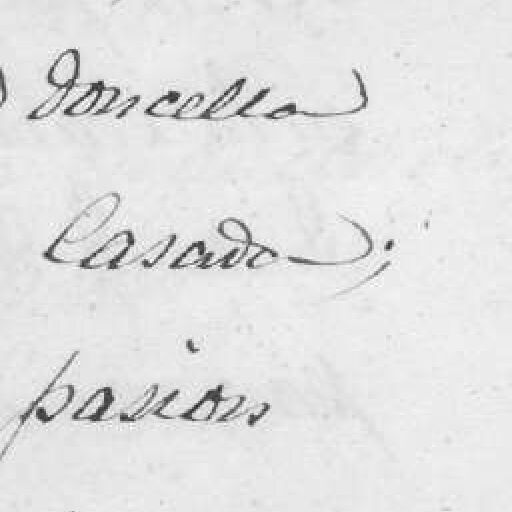 doncella
Casada;
pasion